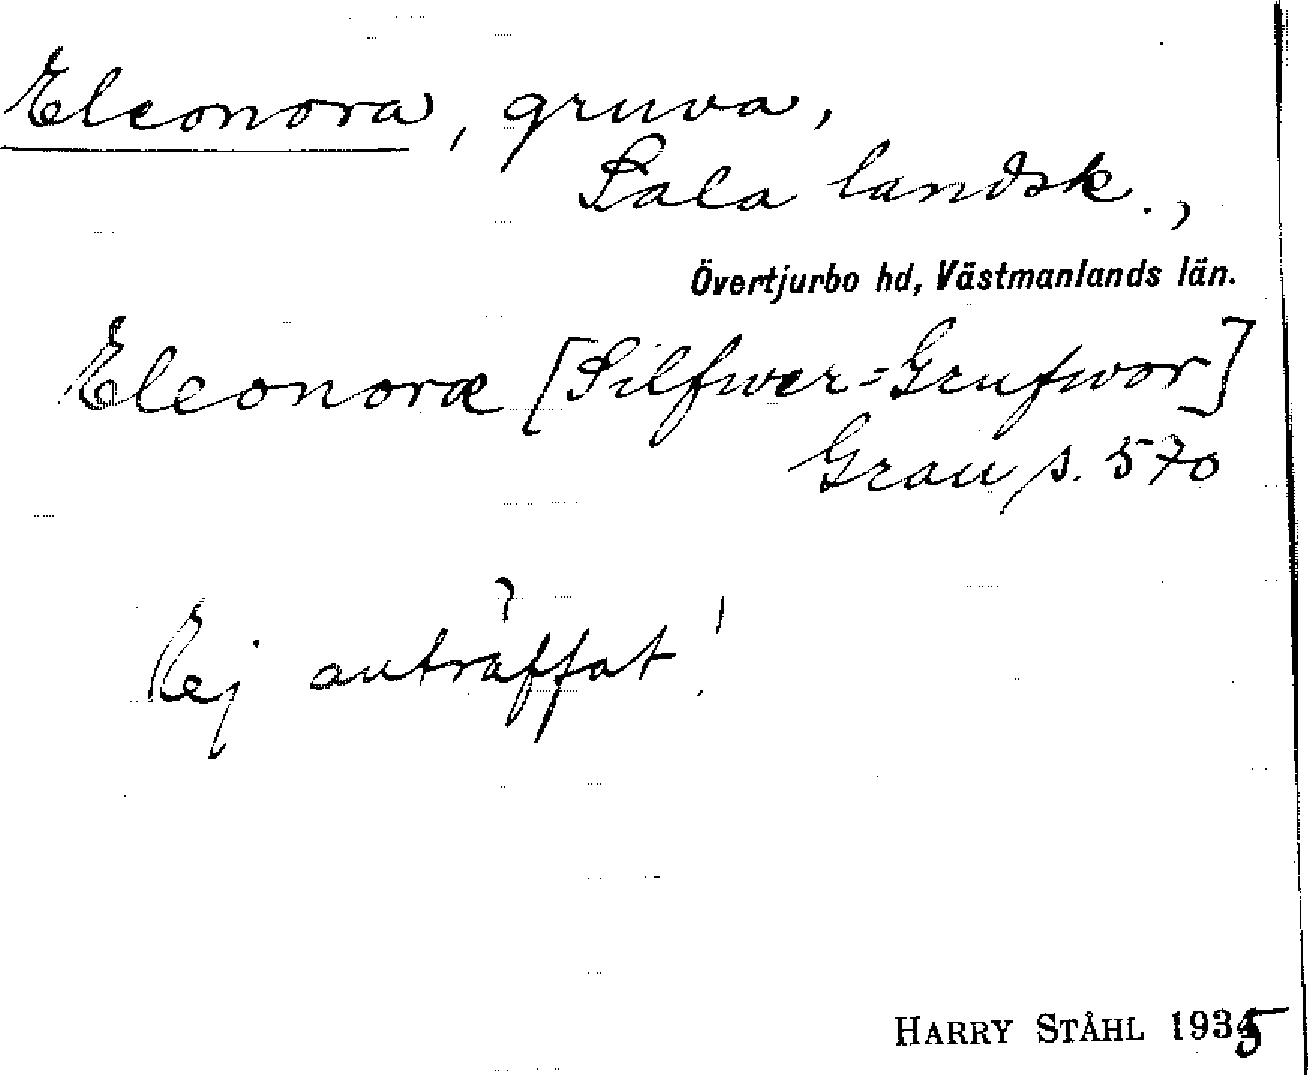 Eleonora, gruva,
Sala landsk.,
Övertjurbo hd, Västmanlands län.
Eleonoræ [Silfwer=Grufwor]
Grau s. 570
Ej anträffat!
HARRY STÅHL 1935